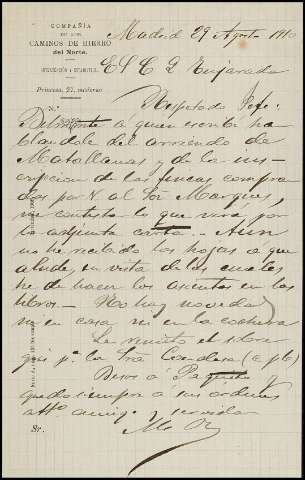 COMPAÑÍA
DE LOS
CAMINOS DE HIERRO
del Norte.
Princesa, 27, moderno
Madrid 29 Agosto 1910
N.º
Respetado Jefe:
Belmonte á quien escribí ha
blandole del arriendo de
Matallanas y de la ins-
cripcion de las fincas compra
das por V. al Sor Marques,
me contesta lo que verá por
la adjunta carta. Aun
no he recibido las hojas a que
alude, en vista de las cuales
he de hacer los asientos en los
libros. No hay novedad
ni en casa ni en la cochera
Le remito el sobre
que pª la Sra Condesa
Besos á Paquito y
quedo siempre a sus ordenes
atto amigo y servidor
Sr.